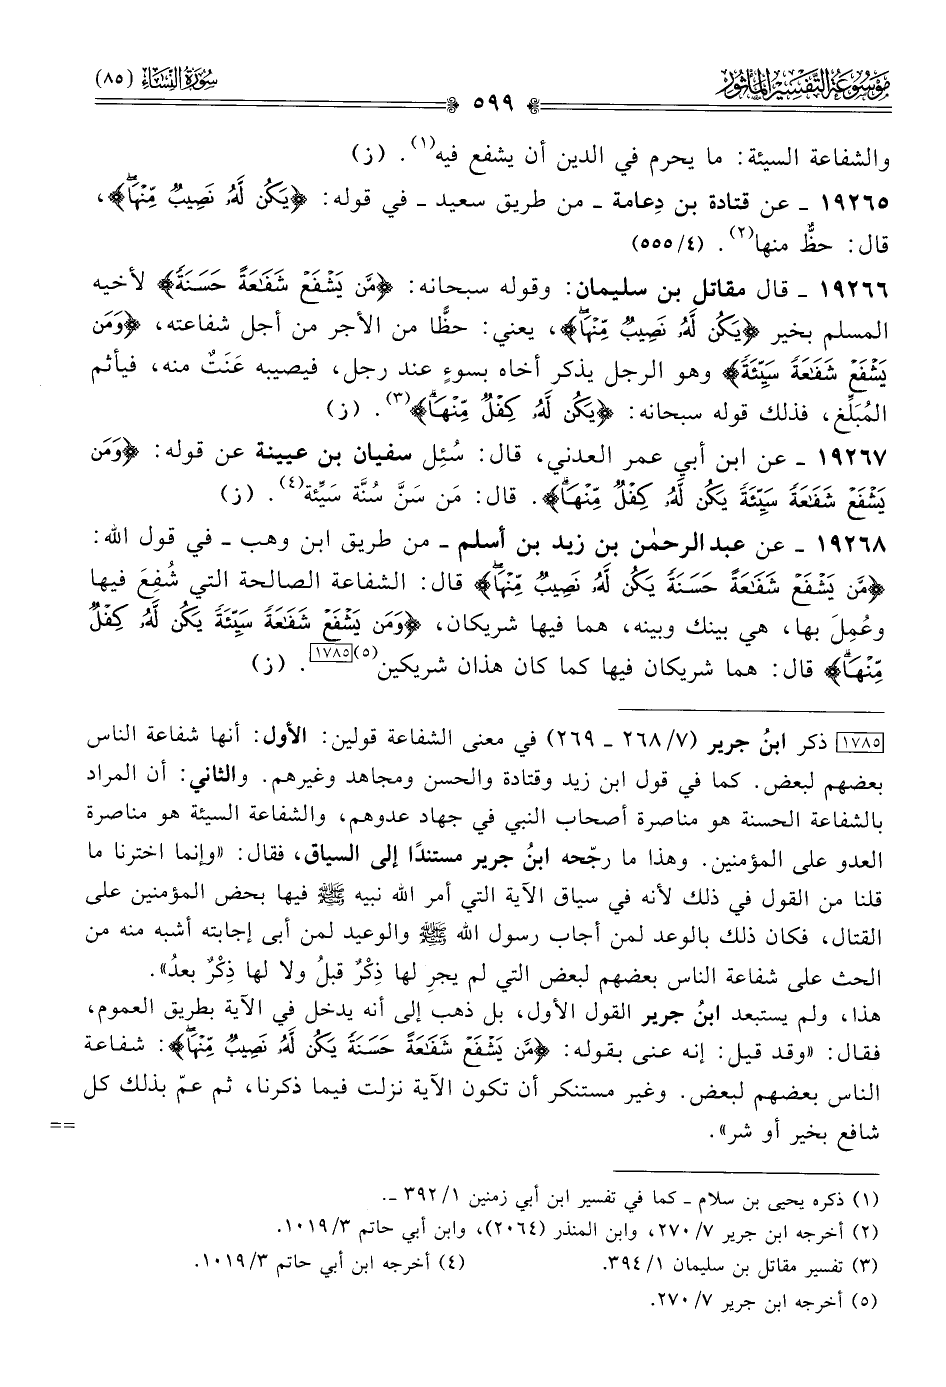 موسوعة التفسير المأثور
٥٩٩
سورة النساء (٨٥)
والشفاعة السيئة: ما يحرم في الدين أن يشفع فيه(١). (ز)
١٩٢٦٥ ـ عن قتادة بن دِعامة ـ من طريق سعيد ـ في قوله: ﴿يَكُن لَّهُۥ نَصِيبٌ مِّنۡهَاۖ﴾،
قال: حظٌّ منها(٢). (٥٥٥/٤)
١٩٢٦٦ ـ قال مقاتل بن سليمان: وقوله سبحانه: ﴿مَّن يَشۡفَعۡ شَفَٰعَةً حَسَنَةً﴾ لأخيه
المسلم بخير ﴿يَكُن لَّهُۥ نَصِيبٌ مِّنۡهَاۖ﴾، يعني: حظًّا من الأجر من أجل شفاعته، ﴿وَمَن
يَشۡفَعۡ شَفَٰعَةً سَيِّئَةً﴾ وهو الرجل يذكر أخاه بسوءٍ عند رجل، فيصيبه عَنَتٌ منه، فيأثم
المُبَلِّغ، فذلك قوله سبحانه: ﴿يَكُن لَّهُۥ كِفۡلٌ مِّنۡهَاۗ﴾(٣). (ز)
١٩٢٦٧ ـ عن ابن أبي عمر العدني، قال: سُئِل سفيان بن عيينة عن قوله: ﴿وَمَن
يَشۡفَعۡ شَفَٰعَةً سَيِّئَةً يَكُن لَّهُۥ كِفۡلٌ مِّنۡهَاۗ﴾. قال: مَن سَنَّ سُنَّة سَيِّئة(٤). (ز)
١٩٢٦٨ ـ عن عبد الرحمٰن بن زيد بن أسلم ـ من طريق ابن وهب ـ في قول الله:
﴿مَّن يَشۡفَعۡ شَفَٰعَةً حَسَنَةً يَكُن لَّهُۥ نَصِيبٌ مِّنۡهَاۖ﴾ قال: الشفاعة الصالحة التي شُفِعَ فيها
وعُمِلَ بها، هي بينك وبينه، هما فيها شريكان، ﴿وَمَن يَشۡفَعۡ شَفَٰعَةً سَيِّئَةً يَكُن لَّهُۥ كِفۡلٌ
مِّنۡهَاۗ﴾ قال: هما شريكان فيها كما كان هذان شريكين(٥)[١٧٨٥]. (ز)
[١٧٨٥] ذكر ابنُ جرير (٢٦٨/٧ ـ ٢٦٩) في معنى الشفاعة قولين: الأول: أنها شفاعة الناس
بعضهم لبعض. كما في قول ابن زيد وقتادة والحسن ومجاهد وغيرهم. والثاني: أن المراد
بالشفاعة الحسنة هو مناصرة أصحاب النبي في جهاد عدوهم، والشفاعة السيئة هو مناصرة
العدو على المؤمنين. وهذا ما رجّحه ابنُ جرير مستندًا إلى السياق، فقال: «وإنما اخترنا ما
قلنا من القول في ذلك لأنه في سياق الآية التي أمر الله نبيه ﷺ فيها بحض المؤمنين على
القتال، فكان ذلك بالوعد لمن أجاب رسول الله ﷺ والوعيد لمن أبى إجابته أشبه منه من
الحث على شفاعة الناس بعضهم لبعض التي لم يجرِ لها ذِكْرٌ قبلُ ولا لها ذِكْرٌ بعدُ».
هذا، ولم يستبعد ابنُ جرير القول الأول، بل ذهب إلى أنه يدخل في الآية بطريق العموم،
فقال: «وقد قيل: إنه عنى بقوله: ﴿مَّن يَشۡفَعۡ شَفَٰعَةً حَسَنَةً يَكُن لَّهُۥ نَصِيبٌ مِّنۡهَاۖ﴾: شفاعة
الناس بعضهم لبعض. وغير مستنكر أن تكون الآية نزلت فيما ذكرنا، ثم عمّ بذلك كل
شافع بخير أو شر».
==
(١) ذكره يحيى بن سلام ـ كما في تفسير ابن أبي زمنين ٣٩٢/١ ـ.
(٢) أخرجه ابن جرير ٢٧٠/٧، وابن المنذر (٢٠٦٤)، وابن أبي حاتم ١٠١٩/٣.
(٣) تفسير مقاتل بن سليمان ٣٩٤/١. (٤) أخرجه ابن أبي حاتم ١٠١٩/٣.
(٥) أخرجه ابن جرير ٢٧٠/٧.